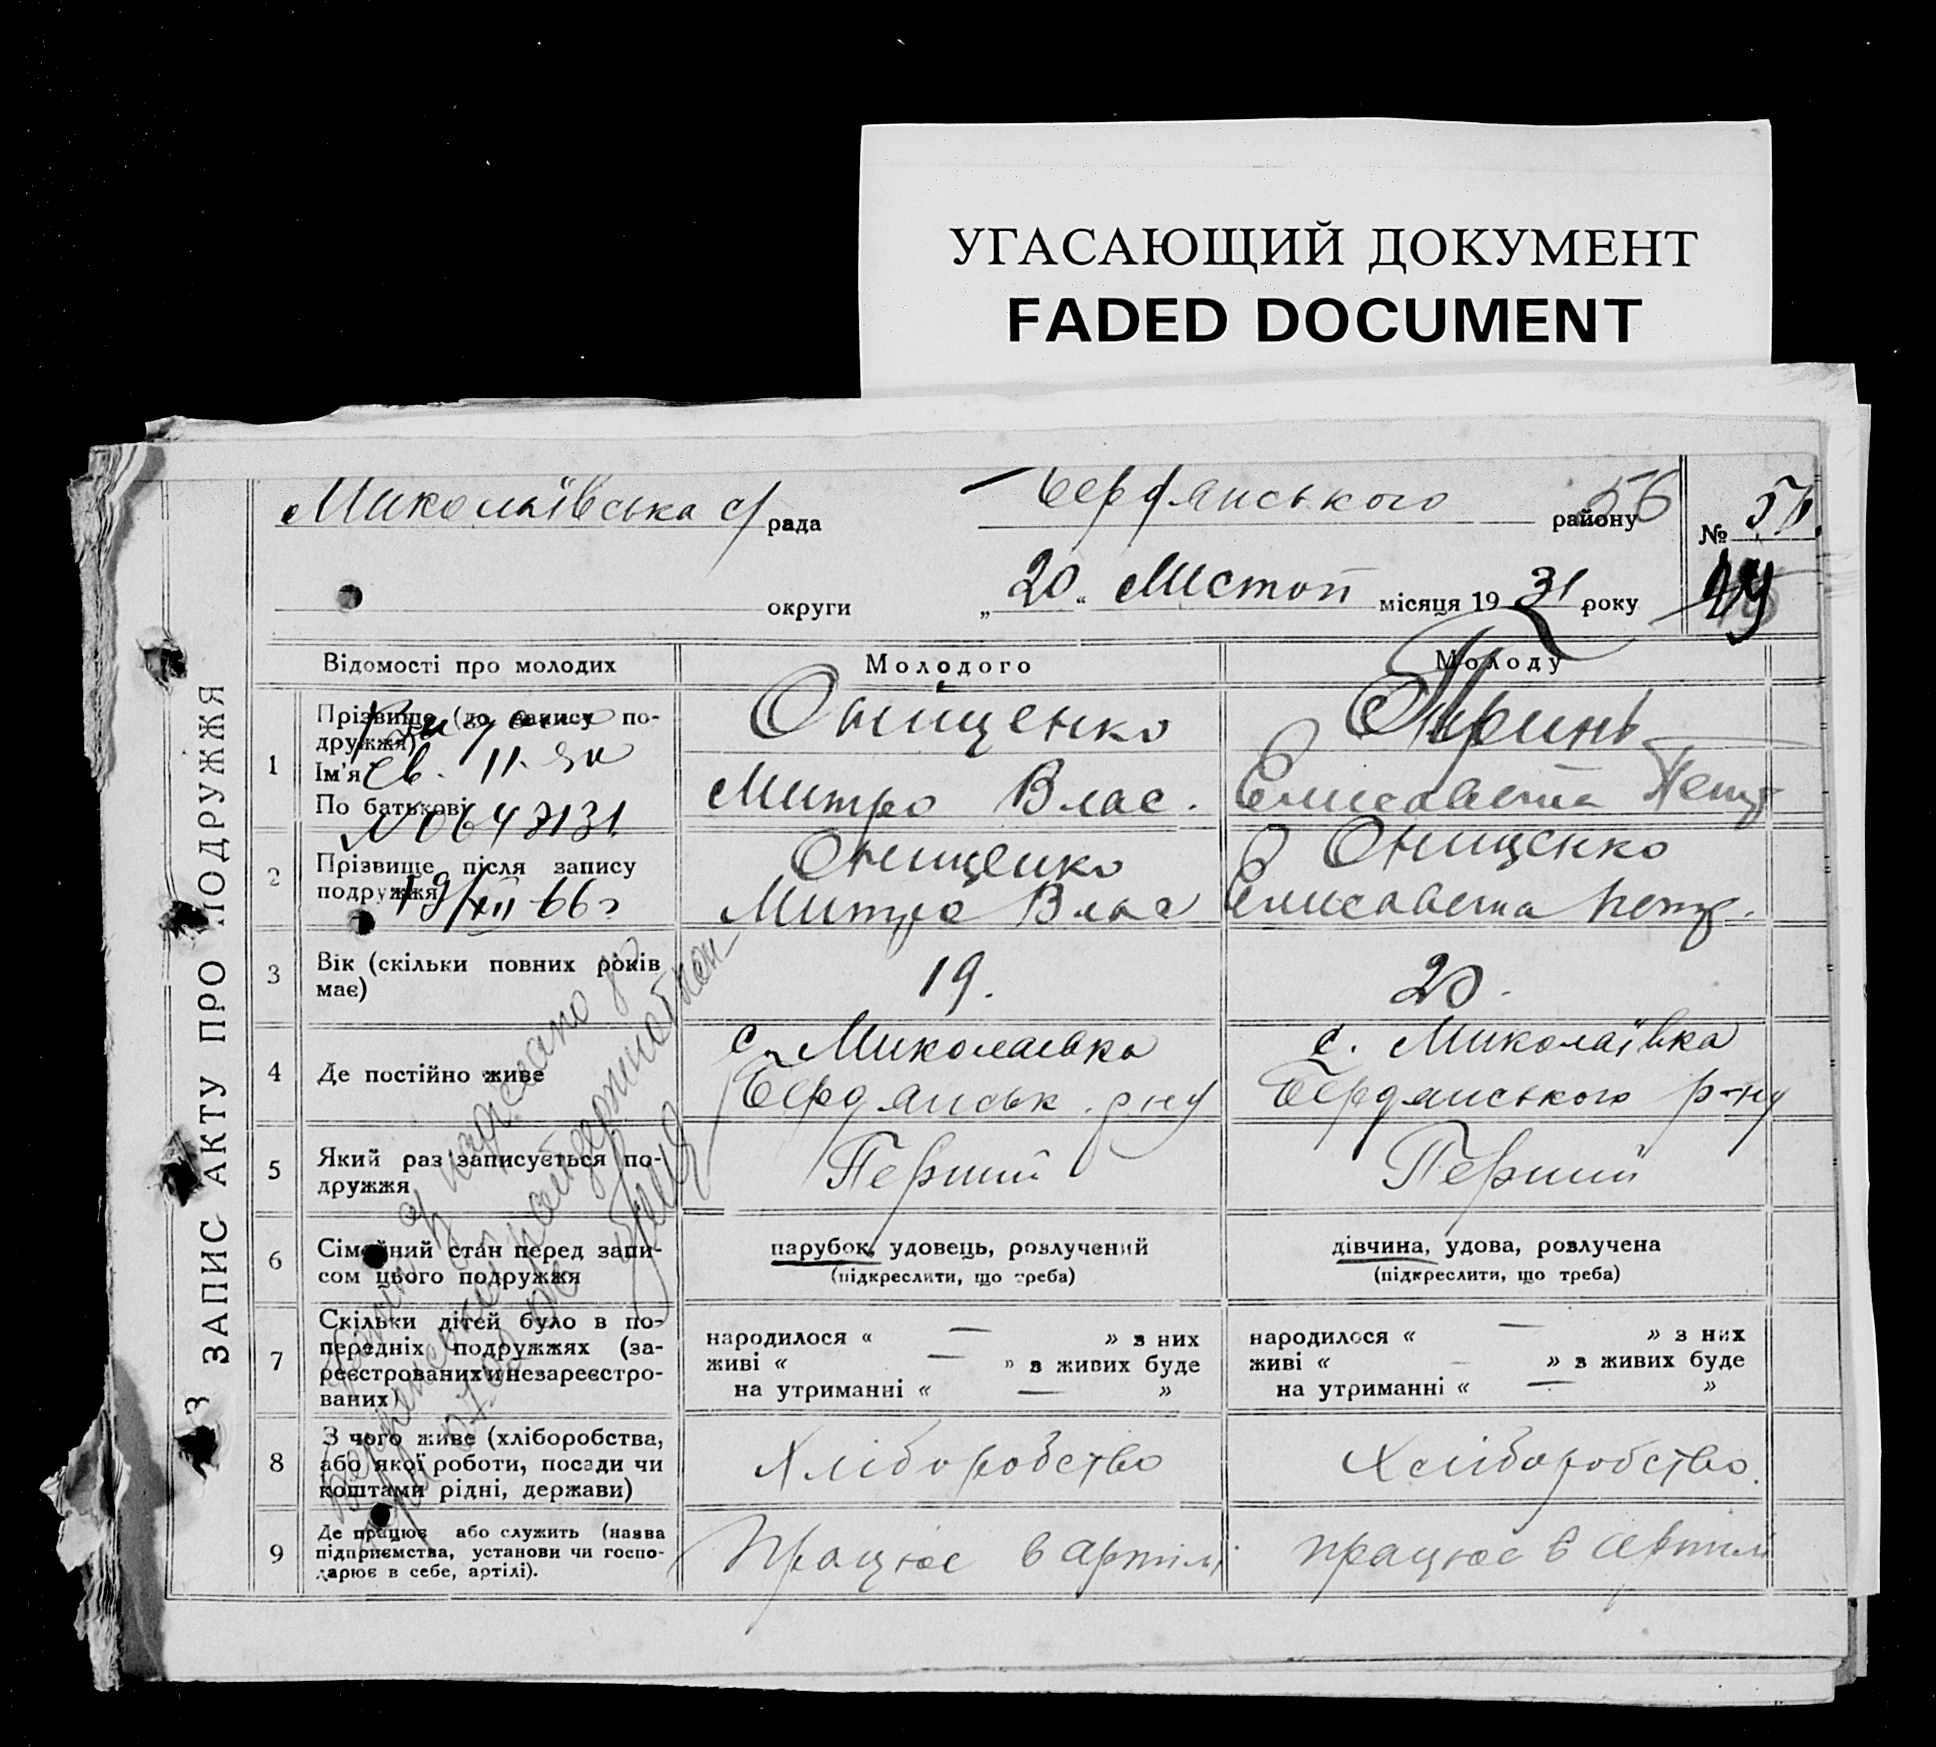 УГАСАЮЩИЙ ДОКУМЕНТ
FADED DOCUMENT
Миколаївська с/рада Бердянського району 56 № 56.
округи „20“ Листоп місяця 1931 року
З ЗАПИС АКТУ ПРО ПОДРУЖЖЯ
Відомості про молодих Молодого Молоду
1 Прізвище (до запису подружжя) Оніщенко
Ім'я
По батькові Митро Влас. Єлисавета Петр
св. 11-ЯИ
№ 0647131
19/XII-66 г
2 Прізвище після запису подружжя Онищенко Онищенко
Митро Влас Єлисавета Петр.
3 Вік (скільки повних років має) 19. 20.
4 Де постійно живе с. Миколаевка с. Миколаївка
Бердянськ. рну Бердянського р-ну
5 Який раз записується подружжя Перший Перший
6 Сімейний стан перед записом цього подружжя парубок, удовець, розлучений дівчина, удова, розлучена
(підкреслити, що треба) (підкреслити, що треба)
7 Скільки дітей було в попередніх подружжях (зареєстрованих и незареєстрованих)
народилося « — » з них народилося « — » з них
живі « — » в живих буде живі « — » в живих буде
на утриманні « — » на утриманні « — »
8 З чого живе (хліборобства, або якої роботи, посади чи коштами рідні, держави) Хліборобство Хліборобство.
9 Де працює або служить (назва підприємства, установи чи господарює в себе, артілі). працює в артілі працює в артілі